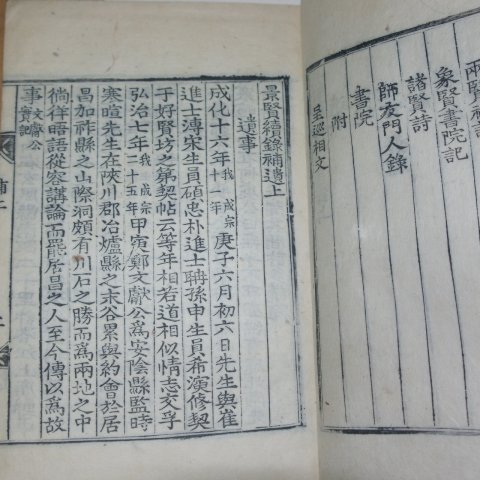 兩賢
象賢書院記
諸賢詩
師友門人錄
書院
附
呈巡相文
景賢續錄補遺上
遺事
成化十六年我成宗十一年庚子六月初六日先生與崔
進士溥宋生員碩忠朴進士聃孫申生員希演修契
于好賢坊之第契帖云等年相若道相似情志交孚
弘治七年我成宗二十五年甲寅鄭文獻公爲安陰縣監時
寒暄先生在陜川郡冶爐縣之末谷累與約會於居
昌加祚縣之山際洞頗有川石之勝而爲兩地之中
徜徉晤語從容講論而罷居昌之人至今傳以爲故
事文獻公實記
補上